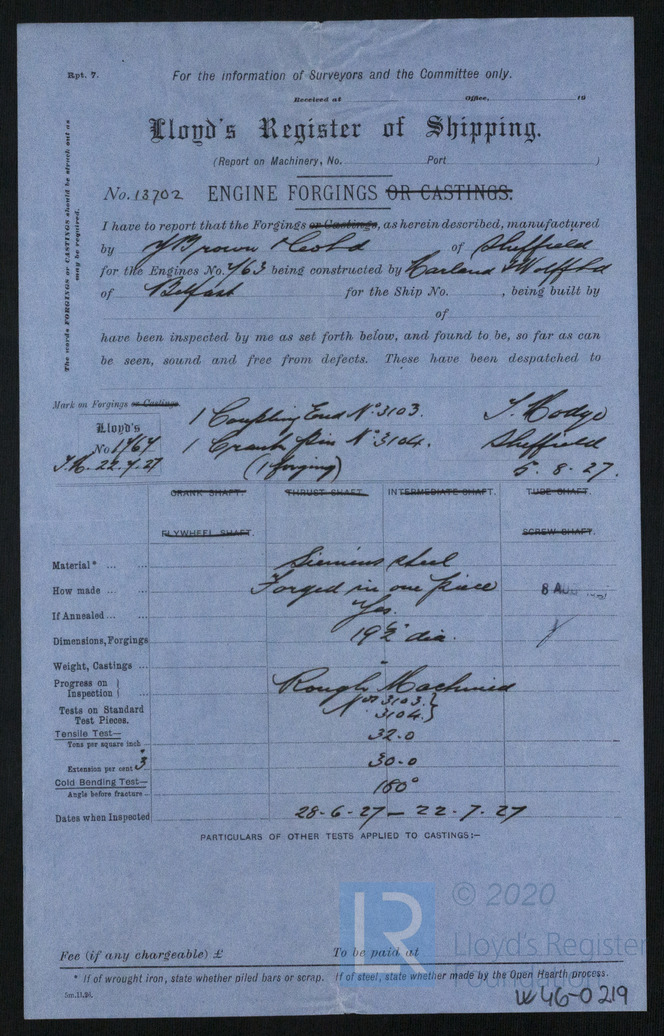 Rpt. 7.
For the information of Surveyors and the Committee only.
Received at Office, 19
Lloyd's Register of Shipping.
(Report on Machinery, No. Port )
No. 13702 ENGINE FORGINGS OR CASTINGS.
The words FORGINGS or CASTINGS should be struck out as may be required.
I have to report that the Forgings or Castings, as herein described, manufactured
by J Brown & Co Ld of Sheffield
for the Engines No. 763 being constructed by Harland & Wolff Ld
of Belfast for the Ship No. , being built by
of
have been inspected by me as set forth below, and found to be, so far as can
be seen, sound and free from defects. These have been despatched to
Mark on Forgings or Castings.
1 Coupling End No. 3103.
Lloyd's
No 1767
1 Crank Pin No. 3104.
Sheffield
22.7.27
(1 forging)
5.8.27.
CRANK SHAFT. THRUST SHAFT. INTERMEDIATE SHAFT. TUBE SHAFT.
FLYWHEEL SHAFT. SCREW SHAFT.
Material* ... ... Siemens steel
How made ... ... Forged in one piece 8 AUG
If Annealed ... ... Yes.
Dimensions, Forgings 19½" dia.
Weight, Castings ...
Progress on Inspection ... Rough Machined
Tests on Standard Test Pieces. Nos 3103. 3104.
Tensile Test—
Tons per square inch 32.0
Extension per cent 3" 30.0
Cold Bending Test—
Angle before fracture 180°
Dates when Inspected 28-6-27 — 22-7-27
PARTICULARS OF OTHER TESTS APPLIED TO CASTINGS:—
© 2020
LR
Lloyd's Register
Foundation
Fee (if any chargeable) £ To be paid at
* If of wrought iron, state whether piled bars or scrap. If of steel, state whether made by the Open Hearth process.
W46-0219